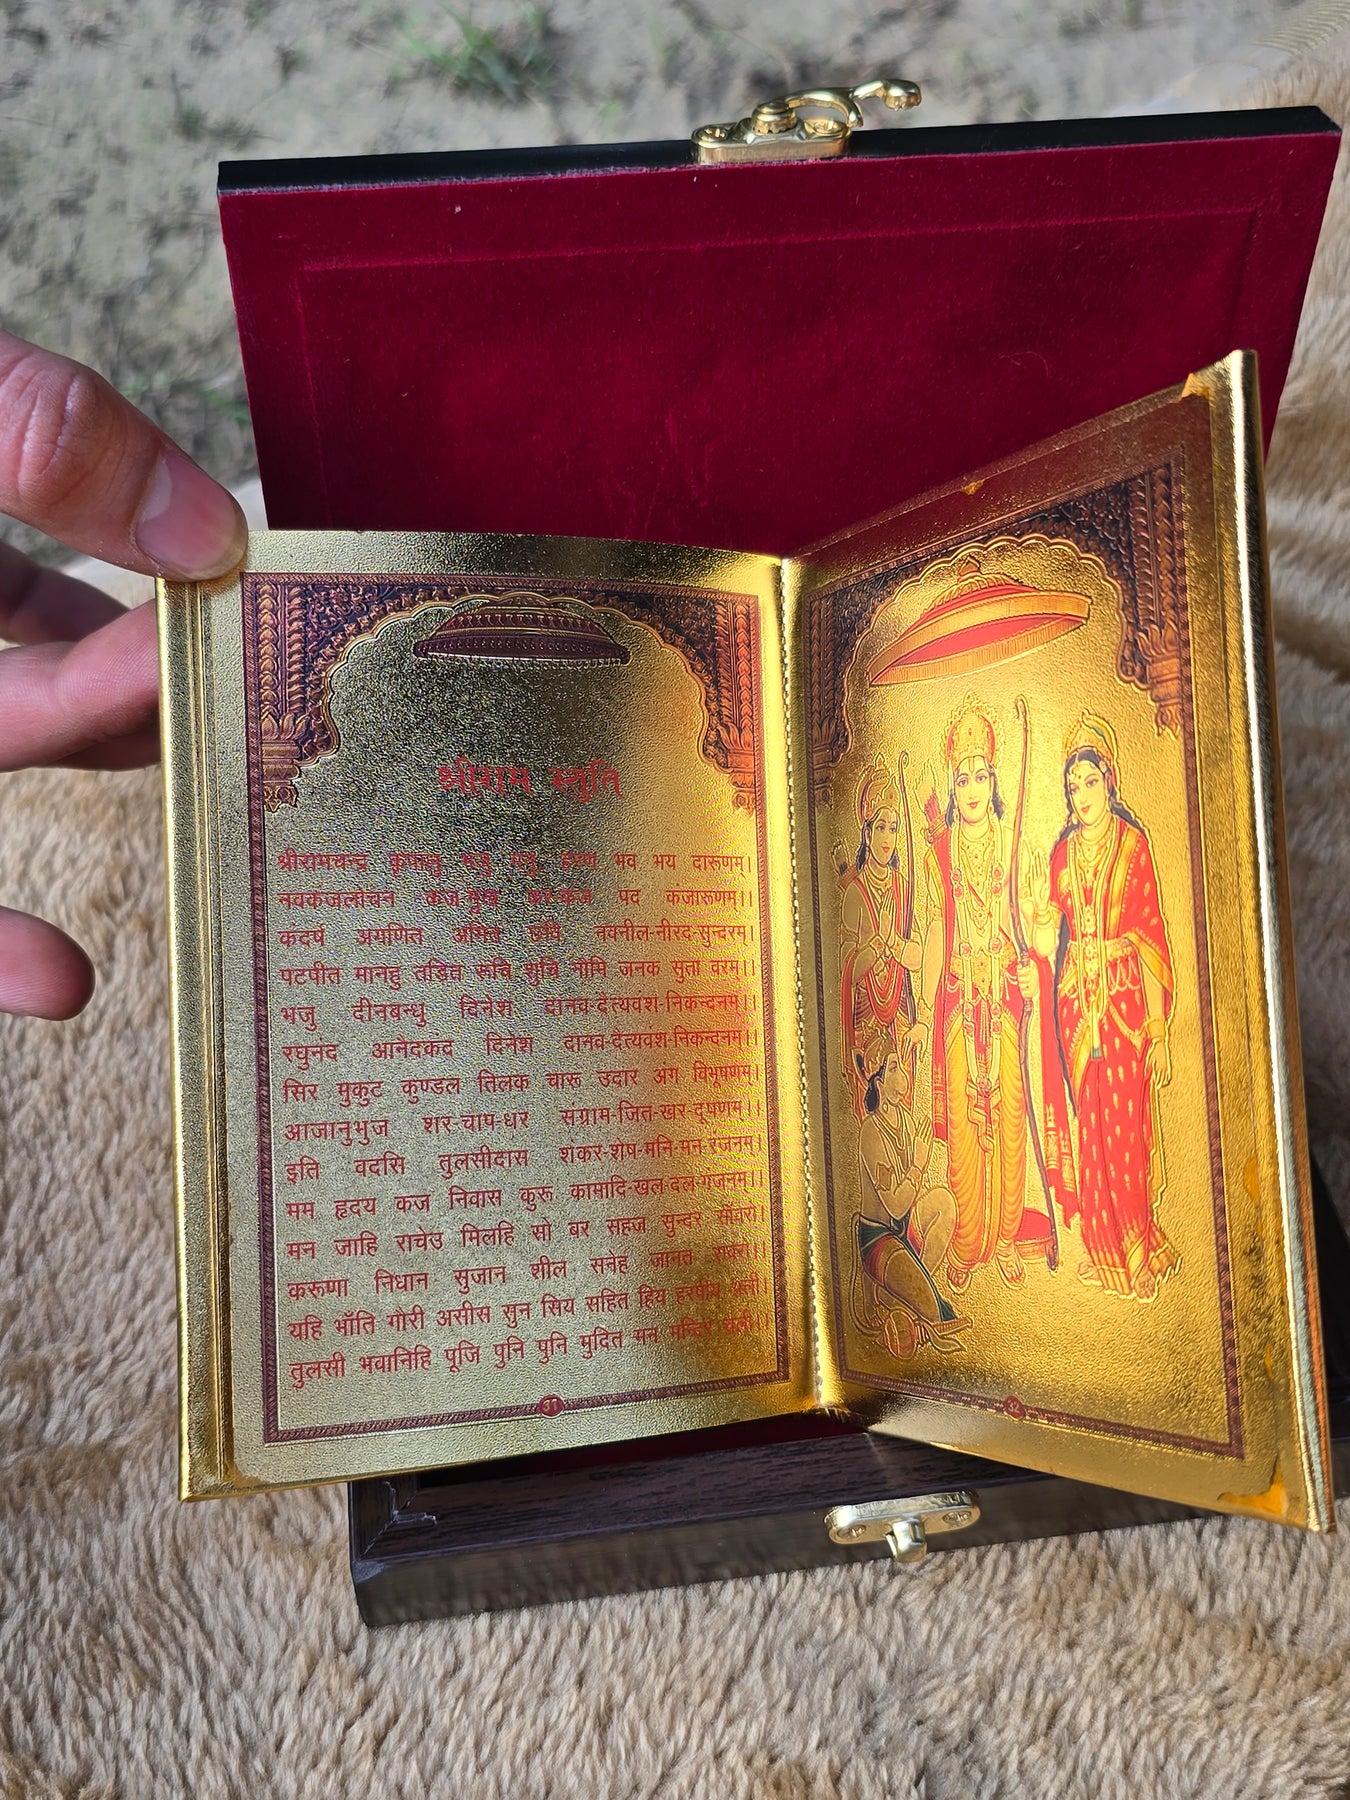 श्रीराम स्तुति
श्रीरामचन्द्र कृपालु भजु मनु, हरण भव भय दारूणम्।
नवकंजलोचन कंज-मुख कर-कंज पद कंजारूणम्।।
कंदर्प अगणित अमित छवि नवनील-नीरद-सुन्दरम्।
पटपीत मानहु तडित रूचि शुचि नौमि जनक सुता वरम्।।
भजु दीनबन्धु दिनेश दानव-दैत्यवंश-निकन्दनम्।।
रघुनंद आनेदकंद दिनेश दानव-दैत्यवंश-निकन्दनमं।।
सिर मुकुट कुण्डल तिलक चारू उदार अंग विभूषणम्।
आजानुभुज शर-चाप-धर संग्राम-जित-खर-दूषणम्।।
इति वदसि तुलसीदास शंकर-शेष-मनि-मन-रंजनम्।
मम हृदय कंज निवास कुरू कामादि-खल-दल-गंजनम्।।
मन जाहि राचेउ मिलहि सो बर सहज सुन्दर साँवरो।
करूणा निधान सुजान शील सनेह जानत रावरो।।
यहि भाँति गौरी असीस सुन सिय सहित हिय हरषीय अली।
तुलसी भवानिहि पूजि पुनि पुनि मुदित मन मन्दिर चली।।
31
32